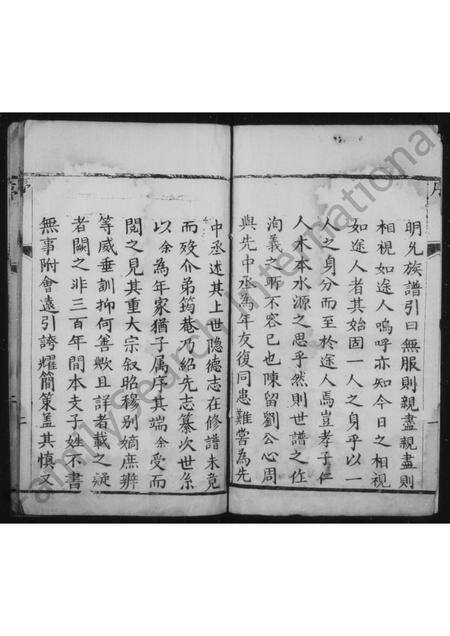 明允族譜引曰無服則親盡親盡則
相視如途人嗚呼亦知今日之相視
如途人者其始固一人之身乎以一
人之身分而至於途人焉豈孝子仁
人木本水源之思乎然則世譜之作
洵義之所不容已也陳留劉公心周
與先中丞為年友復同患難嘗為先
中丞述其上世隱德志在修譜未竟
而歿介弟筠巷乃紹先志纂次世系
以余為年家猶子属序其端余受而
閱之見其重大宗叙昭穆别嫡庶辨
等威垂訓抑何善歟且詳者載之疑
者闕之非三百年間本夫子姓不書
無事附會遠引誇耀簡策盖其慎又
FamilySearch International